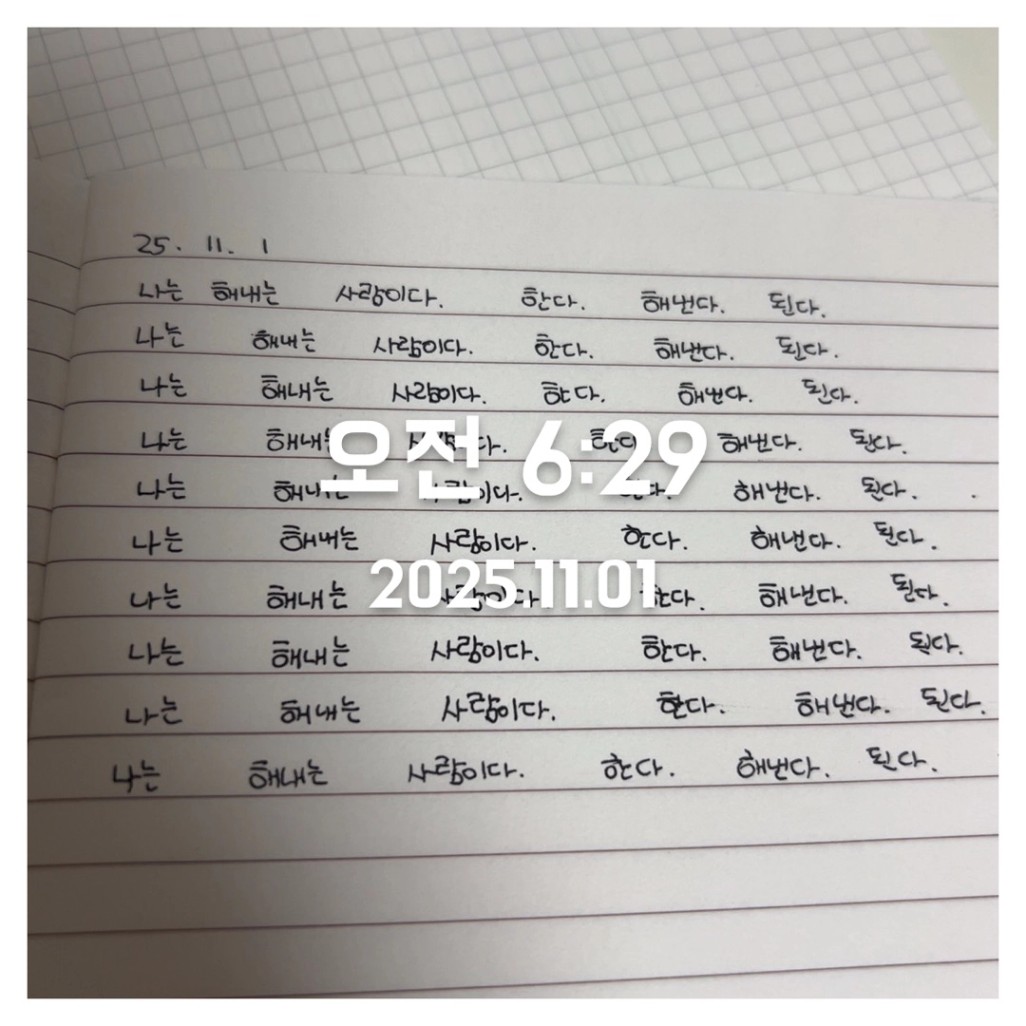 25. 11. 1
나는 해내는 사람이다. 한다. 해낸다. 된다.
나는 해내는 사람이다. 한다. 해낸다. 된다.
나는 해내는 사람이다. 한다. 해낸다. 된다.
나는 해내는 사람이다. 한다 해낸다. 된다.
오전 6:29
나는 해내는 사람이다. 한다. 해낸다. 된다.
나는 해내는 사람이다. 한다. 해낸다. 된다.
2025.11.01
나는 해내는 사람이다 한다. 해낸다. 된다.
나는 해내는 사람이다. 한다. 해낸다. 된다.
나는 해내는 사람이다. 한다. 해낸다. 된다.
나는 해내는 사람이다. 한다. 해낸다. 된다.